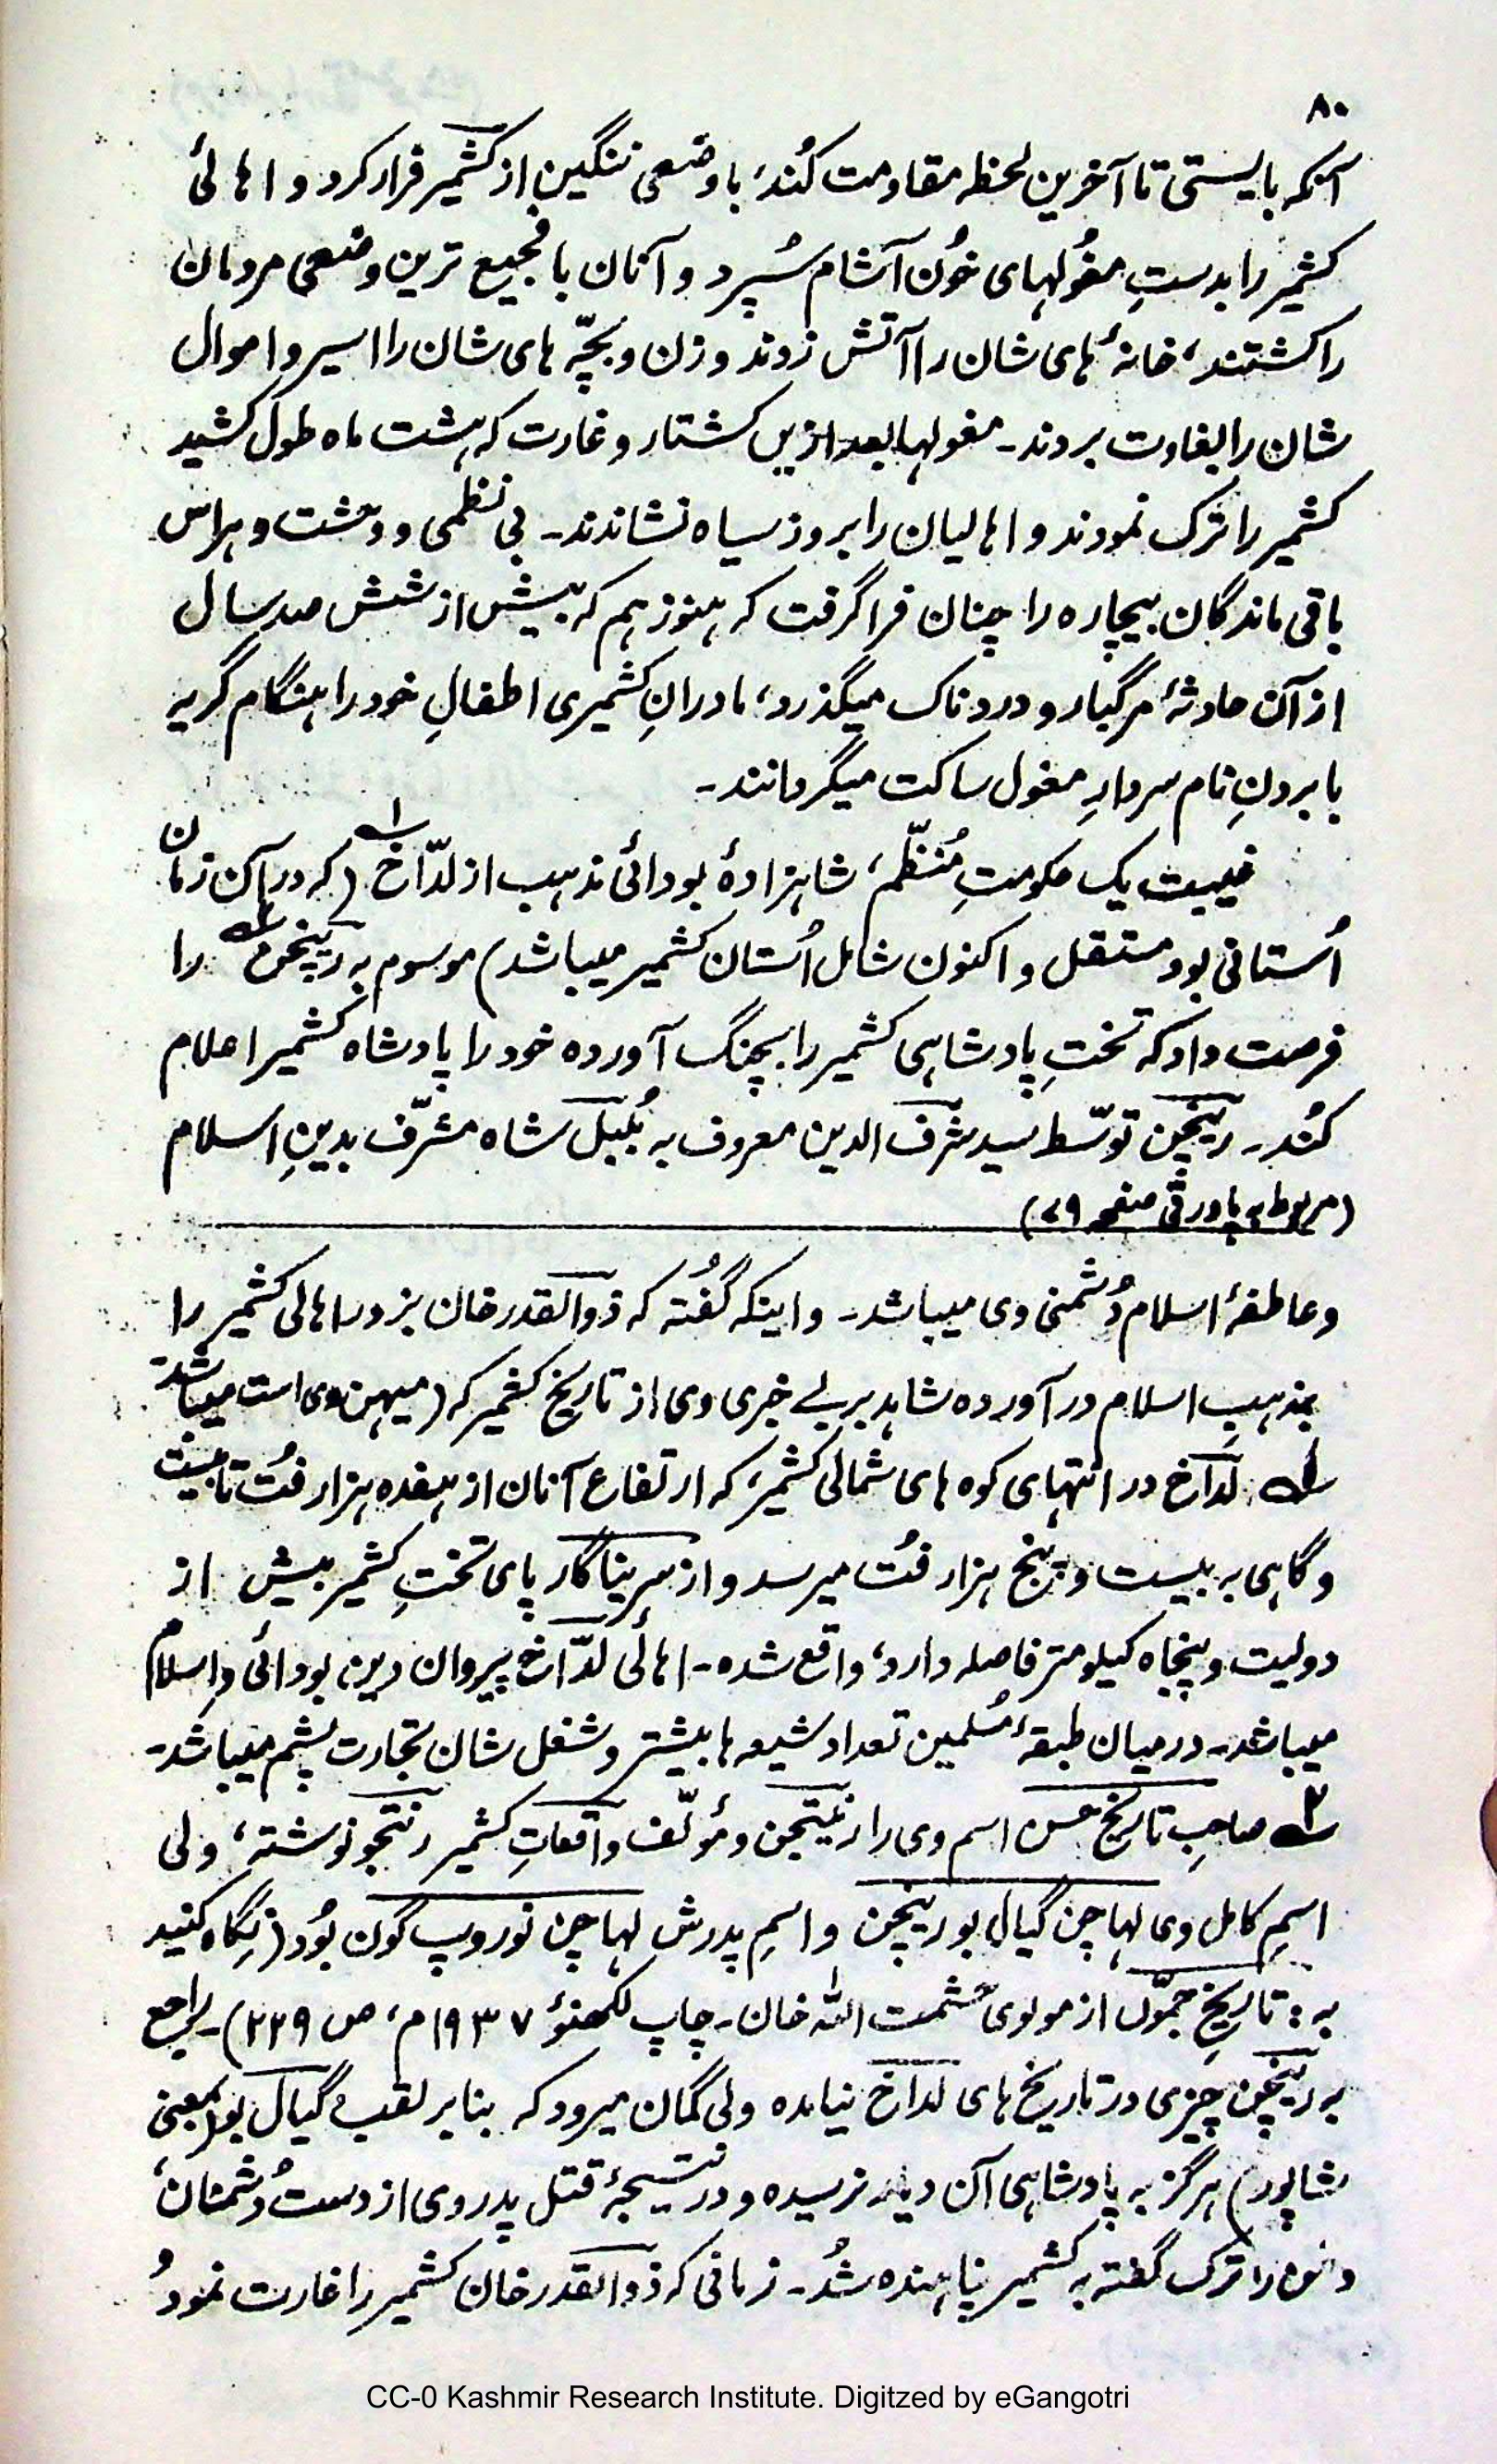 ۸۰
آنکه بایستی تا آخرین لحظه مقاومت کُند، با وضعی ننگین از کشمیر فرار کرد و اهالیٔ
کشمیر را بدستِ مغُولهای خُون آشام سُپرد و آنان با فجیع ترین وضعی مردمان
را کشتند، خانهٔ های شان را آتش زدند و زن و بچّه های شان را اسیر و اموال
شان را بغارت بردند۔ مغولها بعد ازیں کشتار و غارت که هشت ماه طول کشید
کشمیر را ترک نمودند و اهالیان را بروز سیاه نشاندند۔ بی نظمی و دهشت و هراس
باقی ماندگان بیچاره را چنان فرا گرفت که هنوز هم که بیش از شش صد سال
از آن حادثهٔ مرگبار و دردناک میگذرد، مادرانِ کشمیری اطفالِ خود را هنگام گریه
با بردنِ نام سردارِ مغول ساکت میگردانند۔
غیبت یک حکومتِ مُنظّم، شاهزادهٔ بودائی مذهب از لدّاخ ۱؎ (که در آن زمان
اُستانی بود مستقل و اکنون شامل اُستان کشمیر میباشد) موسوم به رینچن ۲؎ را
فرصت داد که تختِ پادشاهی کشمیر را بچنگ آورده خود را پادشاه کشمیر اعلام
کُند۔ رینچن توسّط سید شرف الدین معروف به بُلبل شاه مشرّف بدینِ اسلام
(مربوط به پاورقی صفحه ۷۹)
و عاطفهٔ اسلام دُشمنی وی میباشد۔ و اینکه گفُته که ذوالقدر خان بزور اهالی کشمیر را
بمذهبِ اسلام در آورده شاهد بر بے خبری وی از تاریخ کشمیر که (میهن وی است میباشد۔
۱؎ لدّاخ در انتهای کوه های شمالی کشمیر، که ارتفاع آنان از هفده هزار فُت تا بیست
و گاهی به بیست و پنج هزار فُت میرسد و از سرینا گار پای تختِ کشمیر بیش از
دولیت و پنجاه کیلو متر فاصله دارد، واقع شده۔ اهالیٔ لدّاخ پیروان دین بودائی و اسلام
میباشد۔ در میان طبقهٔ مُسلمین تعداد شیعه ها بیشتر و شغل شان تجارت پشم میباشد۔
۲؎ صاحبِ تاریخ حسن اسم وی را رنیتچن و مؤلّف واقعاتِ کشمیر رنتجو نوشته، ولی
اسمِ کامل وی لہاچن گیال بو رینچن و اسمِ پدرش لہاچن نوروپ گون بُود (نگاه کنید
به : تاریخِ جمّوں از مولوی حشمت اللّٰه خان۔ چاپ لکهنؤ ۱۹۳۷م، ص ۲۲۹)۔ راجع
به رینچن چیزی در تاریخ های لداخ نیامده ولی گمان میرود که بنابر لقب گیال بو (بمعنی
شاپور) هرگز به پادشاهی آن دیار نرسیده و در نتیجهٔ قتل پدر وی از دست دُشمنان،
را ترک گفته به کشمیر پناهنده شُد۔ زمانی که ذوالقدر خان کشمیر را غارت نمود
CC-0 Kashmir Research Institute. Digitzed by eGangotri